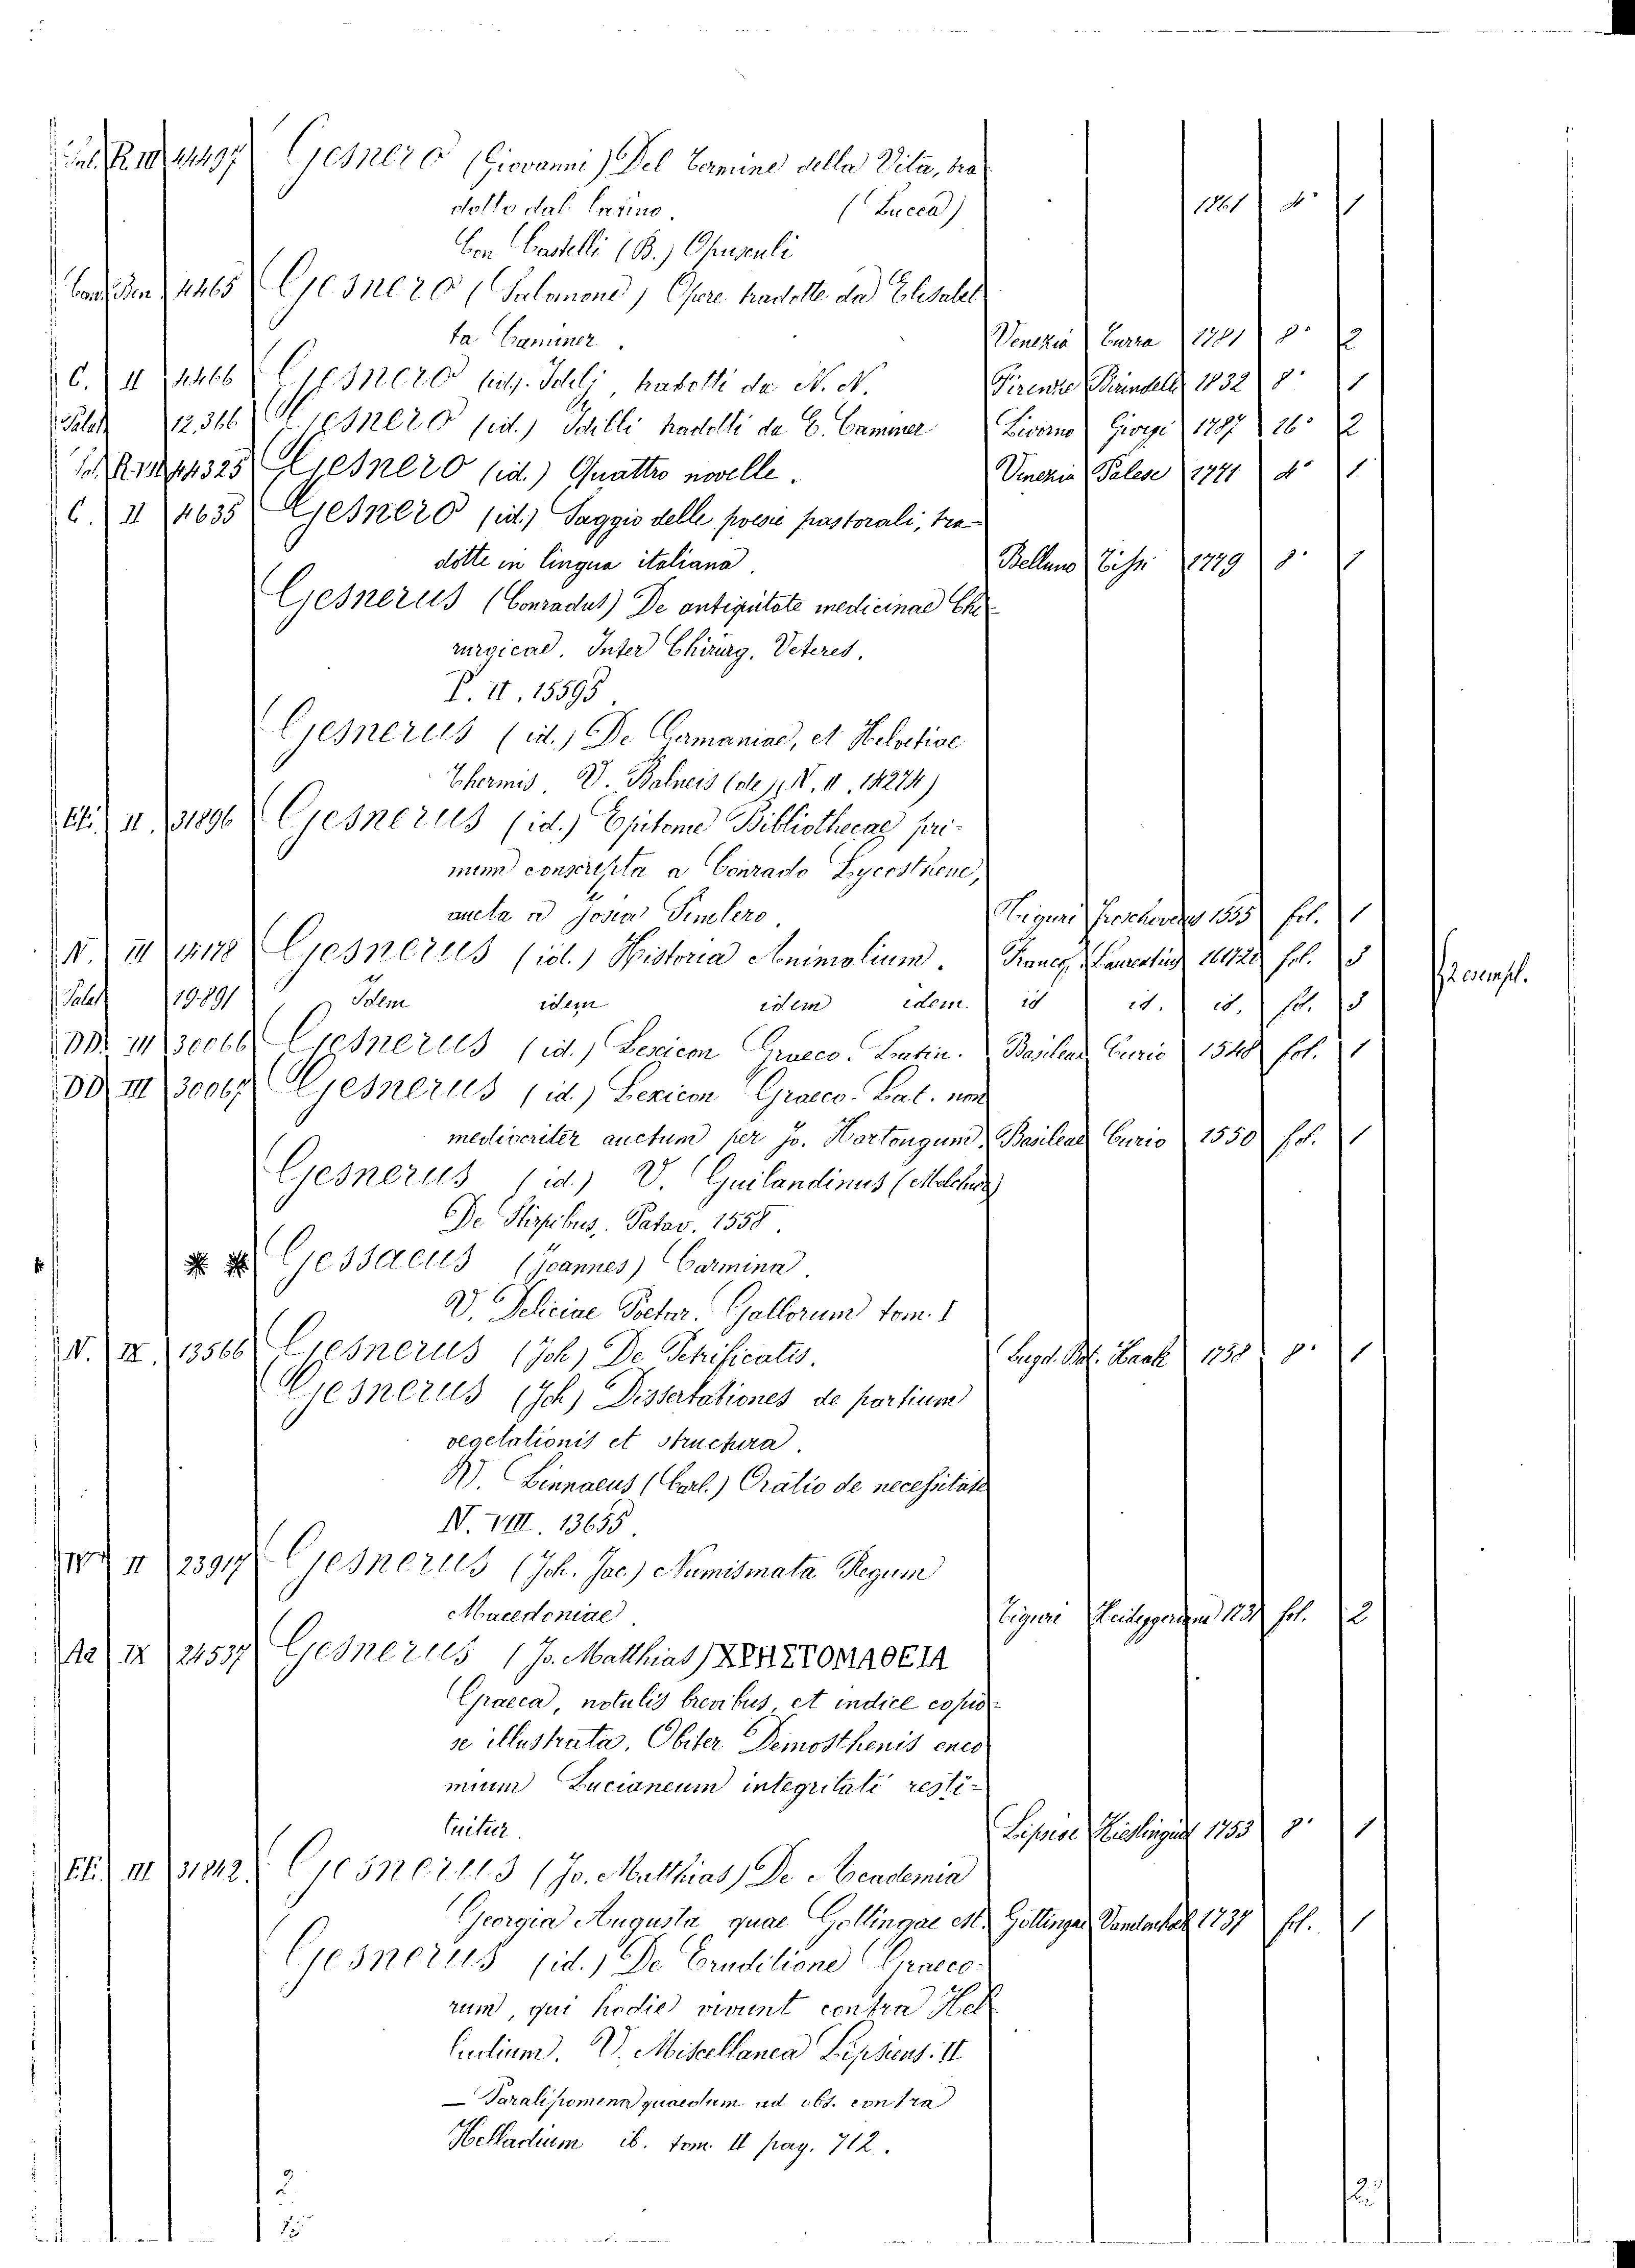 44497 Gesnero (Giovanni) Del Termine della Vita, tra
dotto dal Latino. (Lucca) 1761 4° 1
Con Castelli (B.) Opusculi
4465 Gesnero (Salomone) Opere tradotte da Elisabet
ta Caminer. Venezia 1781 8° 2
C. II 4466 Gesnero (id.) Idilj, tradotti da N. N. Firenze Birindelli 1832 8° 1
Palat 12,366 Gesnero (id.) Idilli tradotti da E. Caminer Livorno Giorgi 1787 16° 2
44325 Gesnero (id.) Quattro novelle. Venezia Palese 1771 4° 1
C. II 4635 Gesnero (id.) Saggio delle poesie pastorali, tra-
dotte in lingua italiana. 1779 8° 1
Gesnerus (Conradus) De antiquitate medicinae Chi-
rurgicae. Inter Chirurg. Veteres.
P. II. 15595
Gesnerus (id.) De Germaniae, et Helvetiae
Thermis. V. Balneis (de), N. II. 14274)
II. 31896 Gesnerus (id.) Epitome Bibliothecae pri-
mum conscripta a Conrado Lycosthene,
aucta a Josia Simlero. Tiguri Froschoverus 1555 fol. 1
N. III 14178 Gesnerus (id.) Historia Animalium. Francf. Laurentius fol. 3
Palat 19891 Idem idem idem idem id id. id. fol. 3
DD. III 30066 Gesnerus (id.) Lexicon Graeco-Latin. Basileae Curio 1548 fol. 1
DD III 30067 Gesnerus (id.) Lexicon Graeco-Lat. non
mediocriter auctum per Jo. Hartongum. Basileae Curio 1550 fol. 1
Gesnerus (id.) V. Guilandinus (Melchior)
De Stirpibus, Patav. 1558.
* * Gessaeus (Joannes) Carmina.
V. Deliciae Poetar. Gallorum tom. 1
N. IX. 13566 Gesnerus (Joh) De Petrificatis. Lugd. Bat. Haak 1758 8° 1
Gesnerus (Joh) Dissertationes de partium
vegetationis et structura.
V. Linnaeus (Carl.) Oratio de necessitate
N. VIII. 13655.
II 23917 Gesnerus (Joh. Jac.) Numismata Regum
Macedoniae Tiguri Heideggerianae fol. 2
Aa IX 24537 Gesnerus (Jo. Matthias) ΧΡΗΣΤΟΜΑΘΕΙΑ
Graeca, notulis brevibus, et indice copio-
se illustrata. Obiter Demosthenis enco
mium Lucianeum integritati resti-
tuitur. Lipsiae Kieslingius 1753 8° 1
III 31842. Gesnerus (Jo. Matthias) De Academia
Georgia Augusta quae Gottingae est. Gottingae Vandenhoek 1737 fol. 1
Gesnerus (id.) De Eruditione Graeco-
rum, qui hodie vivunt contra Hel
ladium. V. Miscellanea Lipsiens. II
— Paralipomena quaedam ad obs. contra
Helladium ib. tom. II pag. 712.
2